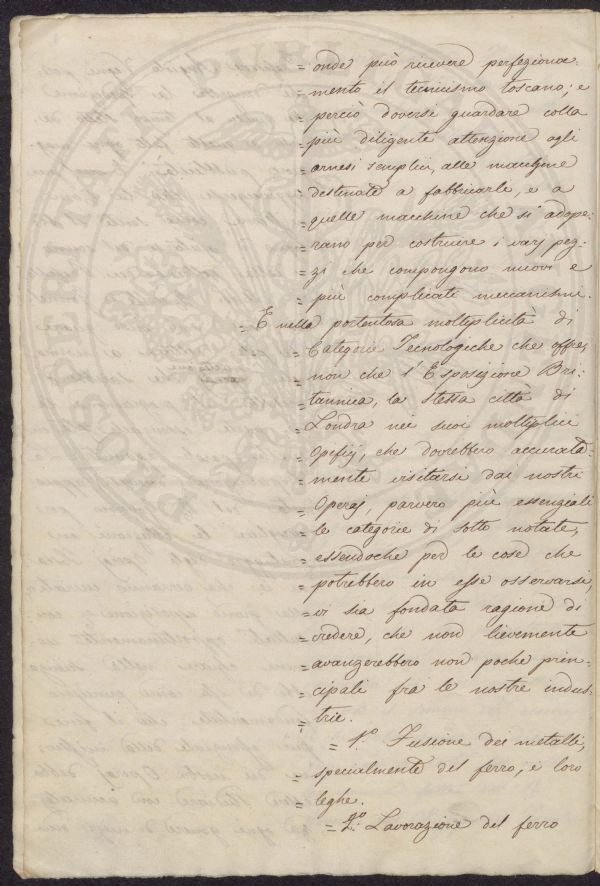 = onde può ricevere perfeziona-
= mento il tecnicismo toscano; e
= perciò doversi guardare colla
= più diligente attenzione agli
= arnesi semplici, alle macchine
= destinate a fabbricarli, e a
= quelle macchine che si adope-
= rano per costruire i varj pez-
= zi che compongono nuovi e
= più complicati meccanismi.
= E nella portentosa moltiplicità di
= Categorie Tecnologiche che offre,
= non che l'Esposizione Bri-
= tannica, la stessa città di
= Londra nei suoi moltiplici
= Opifizj, che dovrebbero accurata-
= mente visitarsi dai nostri
= Operaj, parvero più essenziali
= le categorie di sotto notate,
= essendoche per le cose che
= potrebbero in esse osservarsi,
= vi sia fondata ragione di
= credere, che non lievemente
= avanzerebbero non poche prin-
= cipali fra le nostre indus-
= trie.
= 1.° Fusione dei metalli,
= specialmente del ferro, e loro
= leghe.
= 2.° Lavorazione del ferro